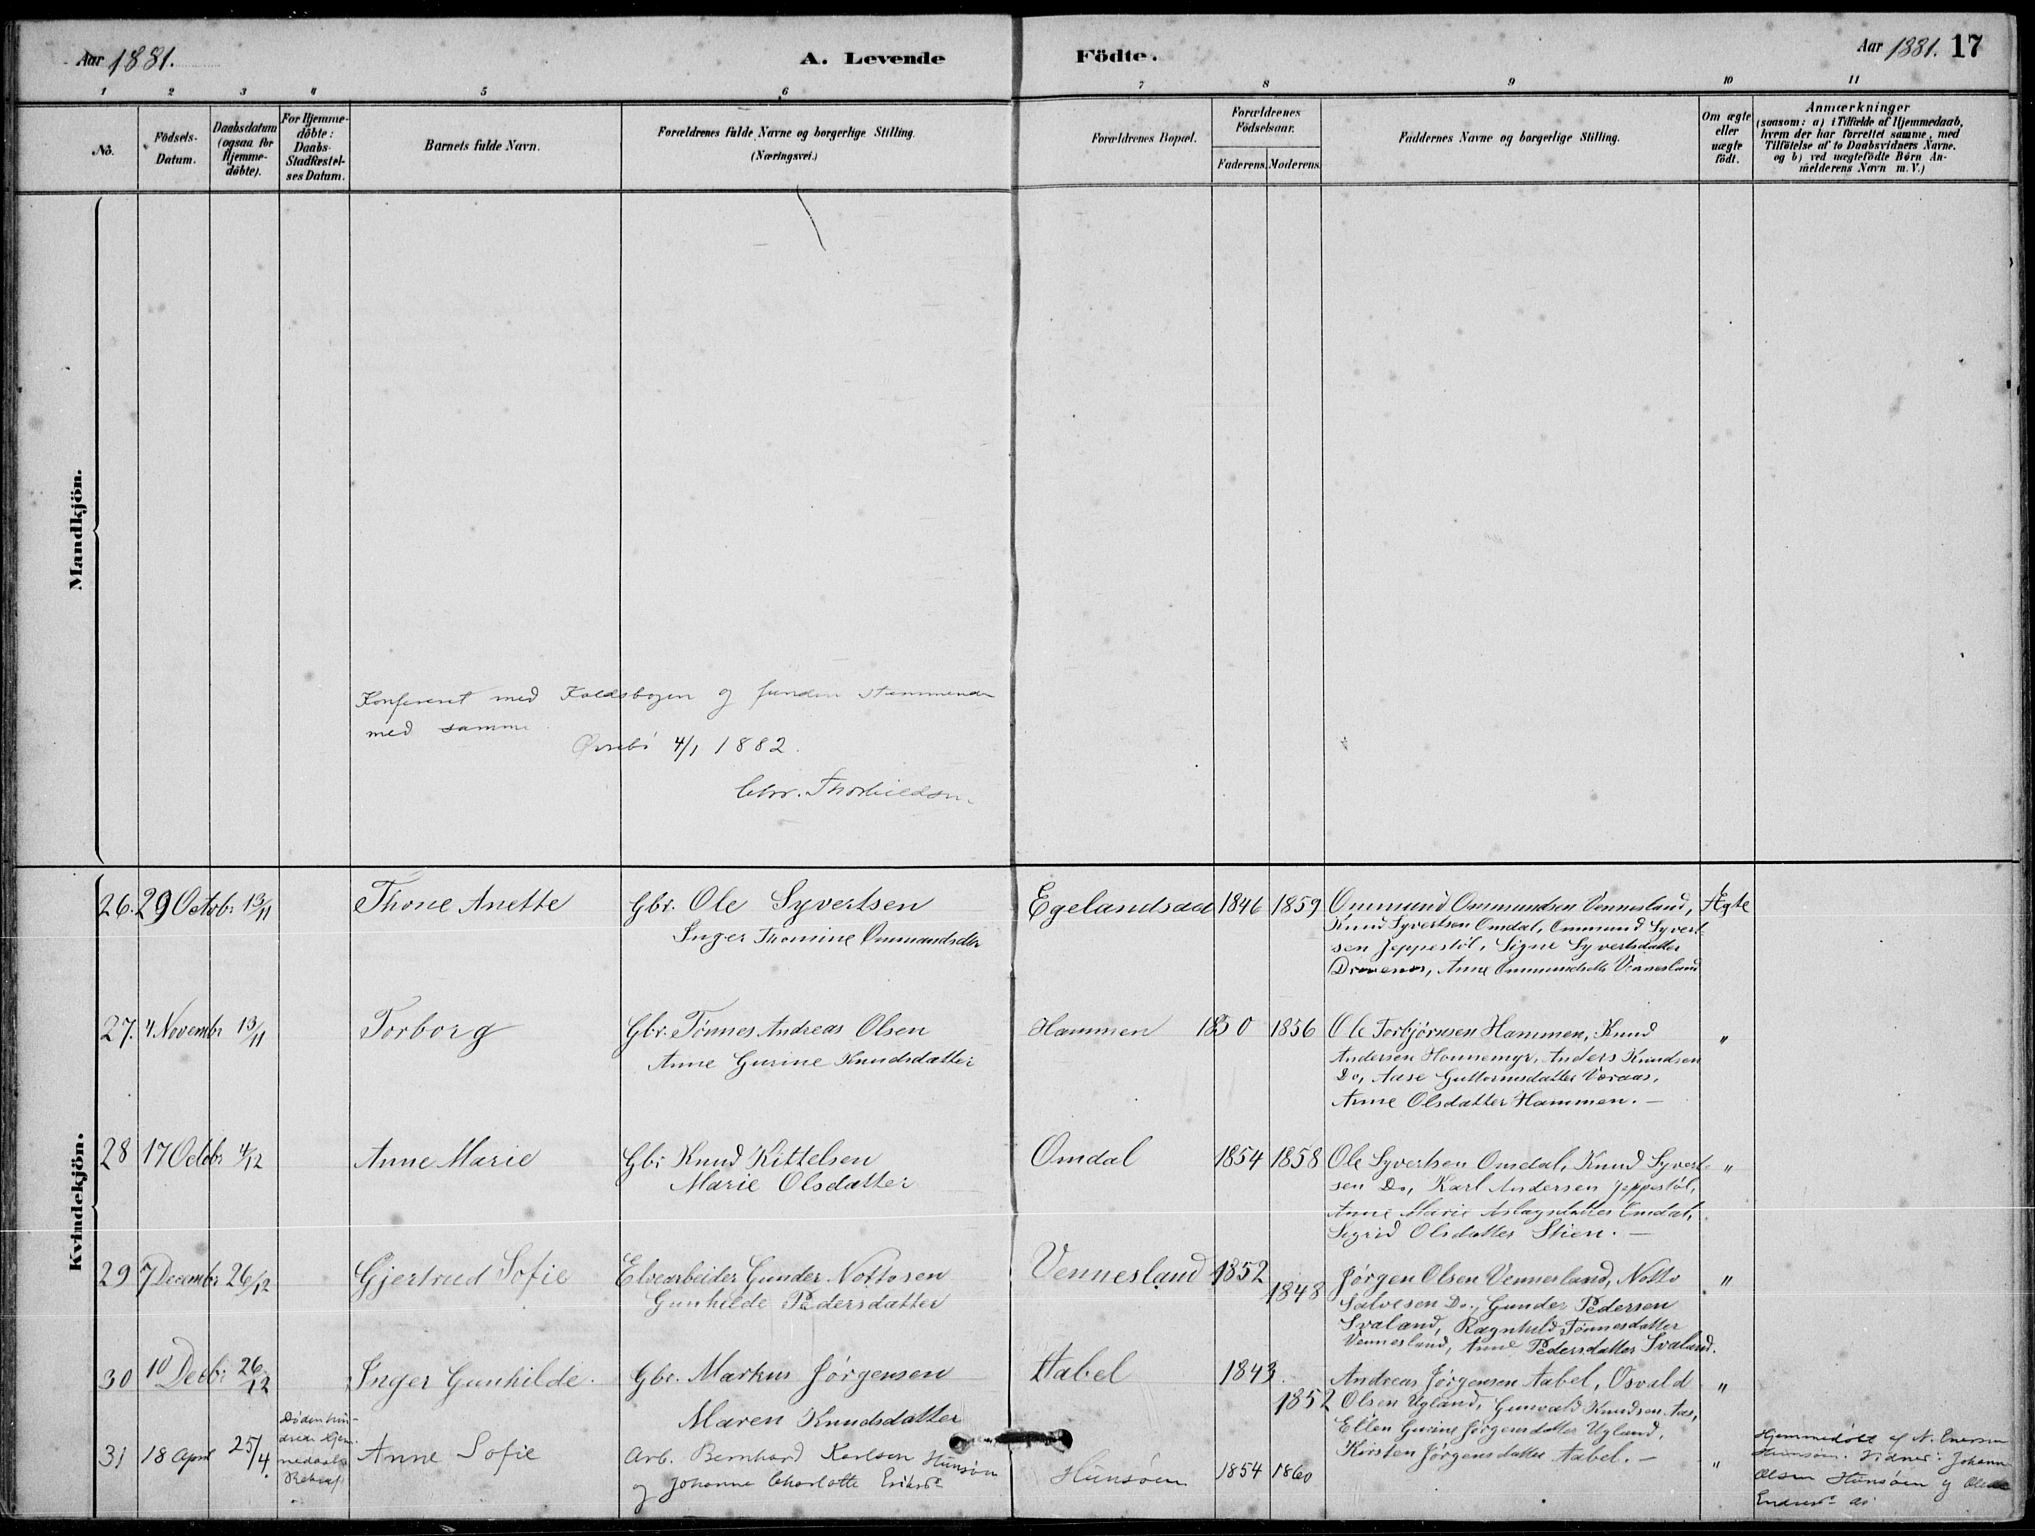 Aar 1881.
A. Levende
Födte.
Aar 1881. 17
1 2 3 4 5 6 7 8 9 10 11
No.
Födsels-
Datum.
Daabsdatum
(ogsaa for
Hjemme-
døbte).
For Hjemme-
døbte:
Daabs-
Stadfæstel-
ses Datum.
Barnets fulde Navn.
Forældrenes fulde Navne og borgerlige Stilling.
(Næringsvei.)
Forældrenes Bopæl.
Forældrenes
Födselsaar.
Faderens. Moderens.
Faddernes Navne og borgerlige Stilling.
Om ægte
eller
uægte
født.
Anmærkninger
(saasom: a) i Tilfælde af Hjemmedaab,
hvem der har forrettet samme, med
Tilföielse af to Daabsvidners Navne.
og b) ved uægtefödte Børn An-
melderens Navn m. V.)
Mandkjön.
Konfereret med Kaldsbogen og funden stemmende
med samme.
Øvrebø 4/1 1882.
Chr. Thorkildsen
Kvindekjön.
26. 29 Octobr 13/11 Thone Anette Gbr. Ole Syvertsen Egelandsaa 1846 1859 Ommund Ommundsen Vennesland, Ægte
Inger Thomine Ommundsdtr Knud Syvertsen Omdal, Ommund Syvert-
sen Jeppestøl, Signe Syvertsdatter
Drivenes, Anne Ommundsdtr Vennesland
27. 4 Novembr 13/11 Torborg Gbr. Tønnes Andreas Olsen Hammen 1850 1856 Ole Torbjørnsen Hammen, Knud "
Anne Gurine Knudsdatter Andersen Honnemyr, Anders Knudsen
Do, Aase Guttormsdatter Voraas,
Anne Olsdatter Hammen. —
28 17 Octobr 4/12 Anne Marie Gbr Knud Kittelsen Omdal 1854 1858 Ole Syvertsen Omdal, Knud Syvert- "
Marie Olsdatter sen Do, Karl Andersen Jeppestøl,
Anne Marie Aslagsdatter Omdal,
Sigrid Olsdatter Stien. —
29 7 Decembr 26/12 Gjertrud Sofie Elvearbeider Gunder Nottosen Vennesland 1852 Jørgen Olsen Vennesland, Notto "
Gunhilde Pedersdatter 1848 Salvesen Do., Gunder Pedersen
Svaland, Ragnhild Tønnesdatter
Vennesland, Anne Pedersdatter Svaland.
30 10 Decbr 26/12 Inger Gunhilde. Gbr. Markus Jørgensen Aabel 1843. Andreas Jørgensen Aabel, Osvald "
Maren Knudsdatter 1852 Olsen Ugland, Gunvald Knudsen Aas,
Ellen Gurine Jørgensdatter Ugland,
Kirsten Jørgensdatter Aabel. —
31 18 April 25/4. Døden hin-
drede Hjem-
medaabs
Anne Sofie Arb. Bernhard Karlsen Hunsøen
og Johanne Charlotte Eriksdr Hunsøen 1854 1860 "
Hjemmedøbt af N. Enersen
Hunsøen. Vidner: Johann
Olsen Hunsøen og